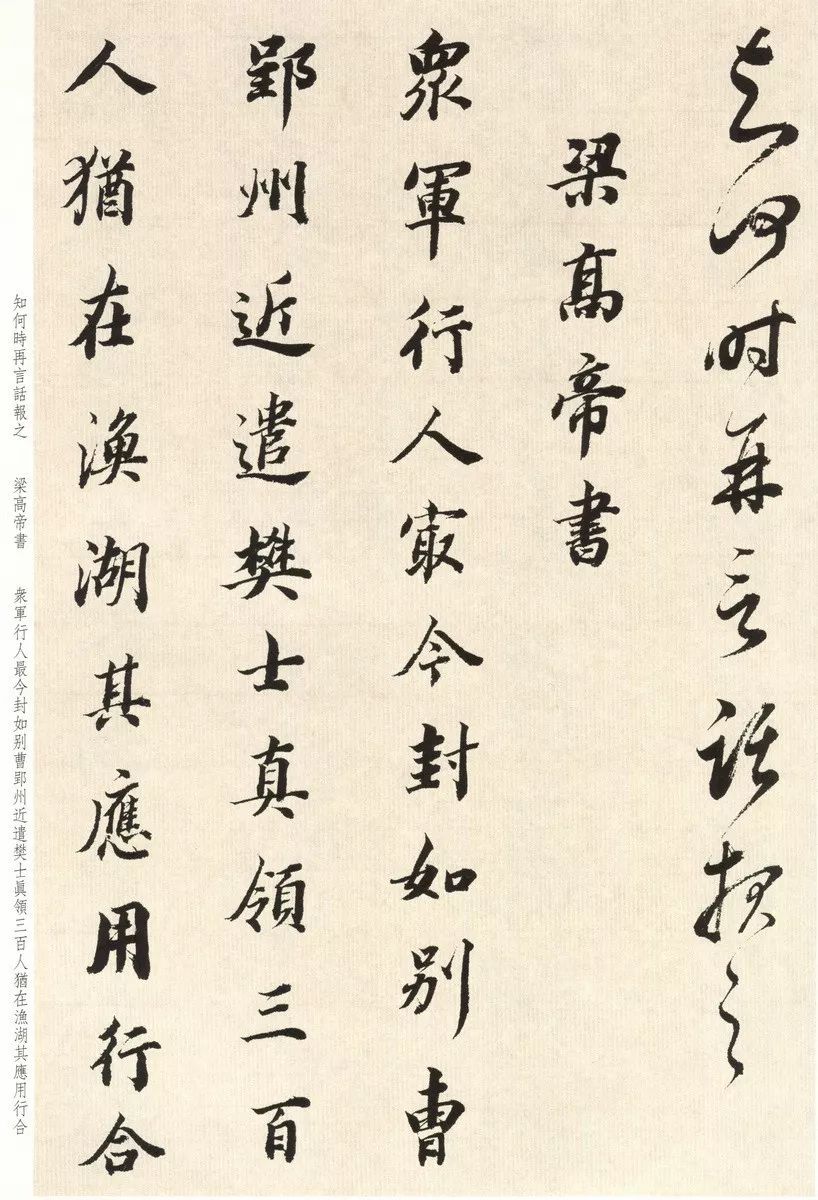 知何时再言话报之
梁高帝書
衆軍行人冣今封如别曹
郢州近遣樊士真領三百
人猶在漁湖其應用行合
知何時再言話報之　梁高帝書　衆軍行人最今封如别曹郢州近遣樊士眞領三百人猶在漁湖其應用行合